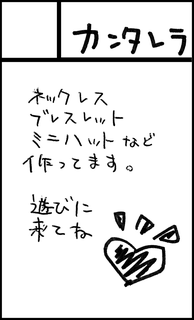 カンタレラ
ネックレス
ブレスレット
ミニハットなど
作ってます。
遊びに
来てね